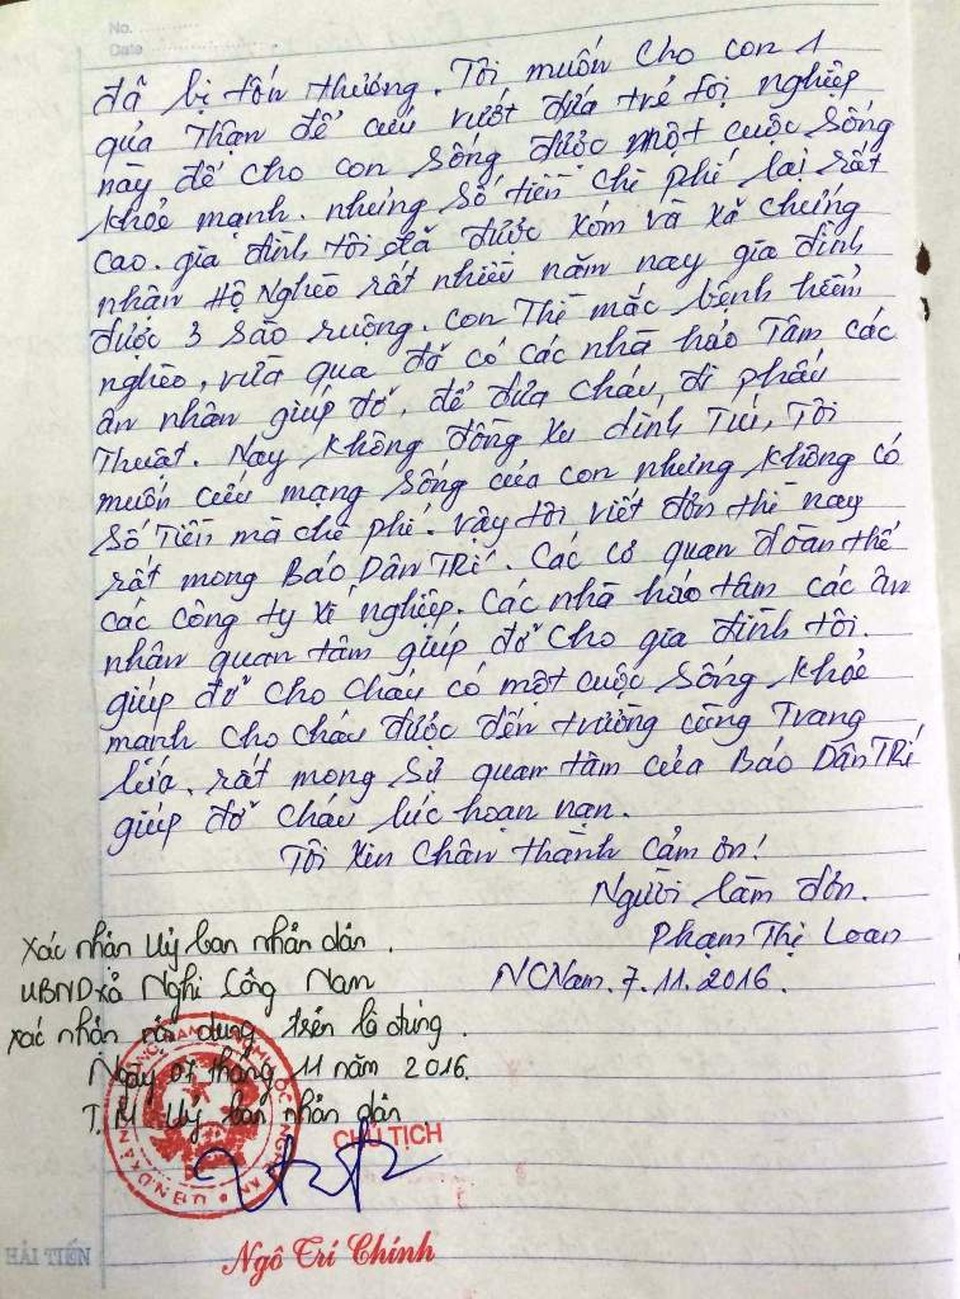 No.
Date
đã bị tổn thương. Tôi muốn cho con 1
quả thận để cứu vướt đứa trẻ tội nghiệp
này để cho con sống được một cuộc sống
khỏe mạnh. nhưng số tiền chi phí lại rất
cao. gia đình tôi đã được xóm và xã chứng
nhận Hộ Nghèo rất nhiều năm nay gia đình
được 3 sào ruộng. con Thì mắc bệnh hiểm
nghèo, vừa qua đã có các nhà hảo Tâm các
ân nhân giúp đỡ, để đưa cháu, đi phẩu
Thuật. Nay không đồng xu dính Túi, Tôi
muốn cứu mạng sống của con nhưng không có
số Tiền mà chi phí. vậy tôi viết đơn thi nay
rất mong Báo DÂN TRÍ. Các cơ quan đoàn thể
các công ty xí nghiệp. Các nhà hảo tâm các ân
nhân quan tâm giúp đỡ cho gia đình tôi.
giúp đỡ cho cháu có một cuộc sống khỏe
mạnh cho cháu được đến trường cùng Trang
lứa, rất mong sự quan tâm của Báo DÂN TRÍ
giúp đỡ cháu lúc hoạn nạn.
Tôi xin chân thành cảm ơn!
Người làm đơn.
Phạm Thị Loan
NCNam. 7. 11. 2016.
Xác nhận Uỷ ban nhân dân.
UBND xã Nghi Công Nam
xác nhận nội dung trên là đúng.
Ngày 07 tháng 11 năm 2016.
T.M Uỷ ban nhân dân
CHỦ TỊCH
Ngô Trí Chính
HẢI TIẾN